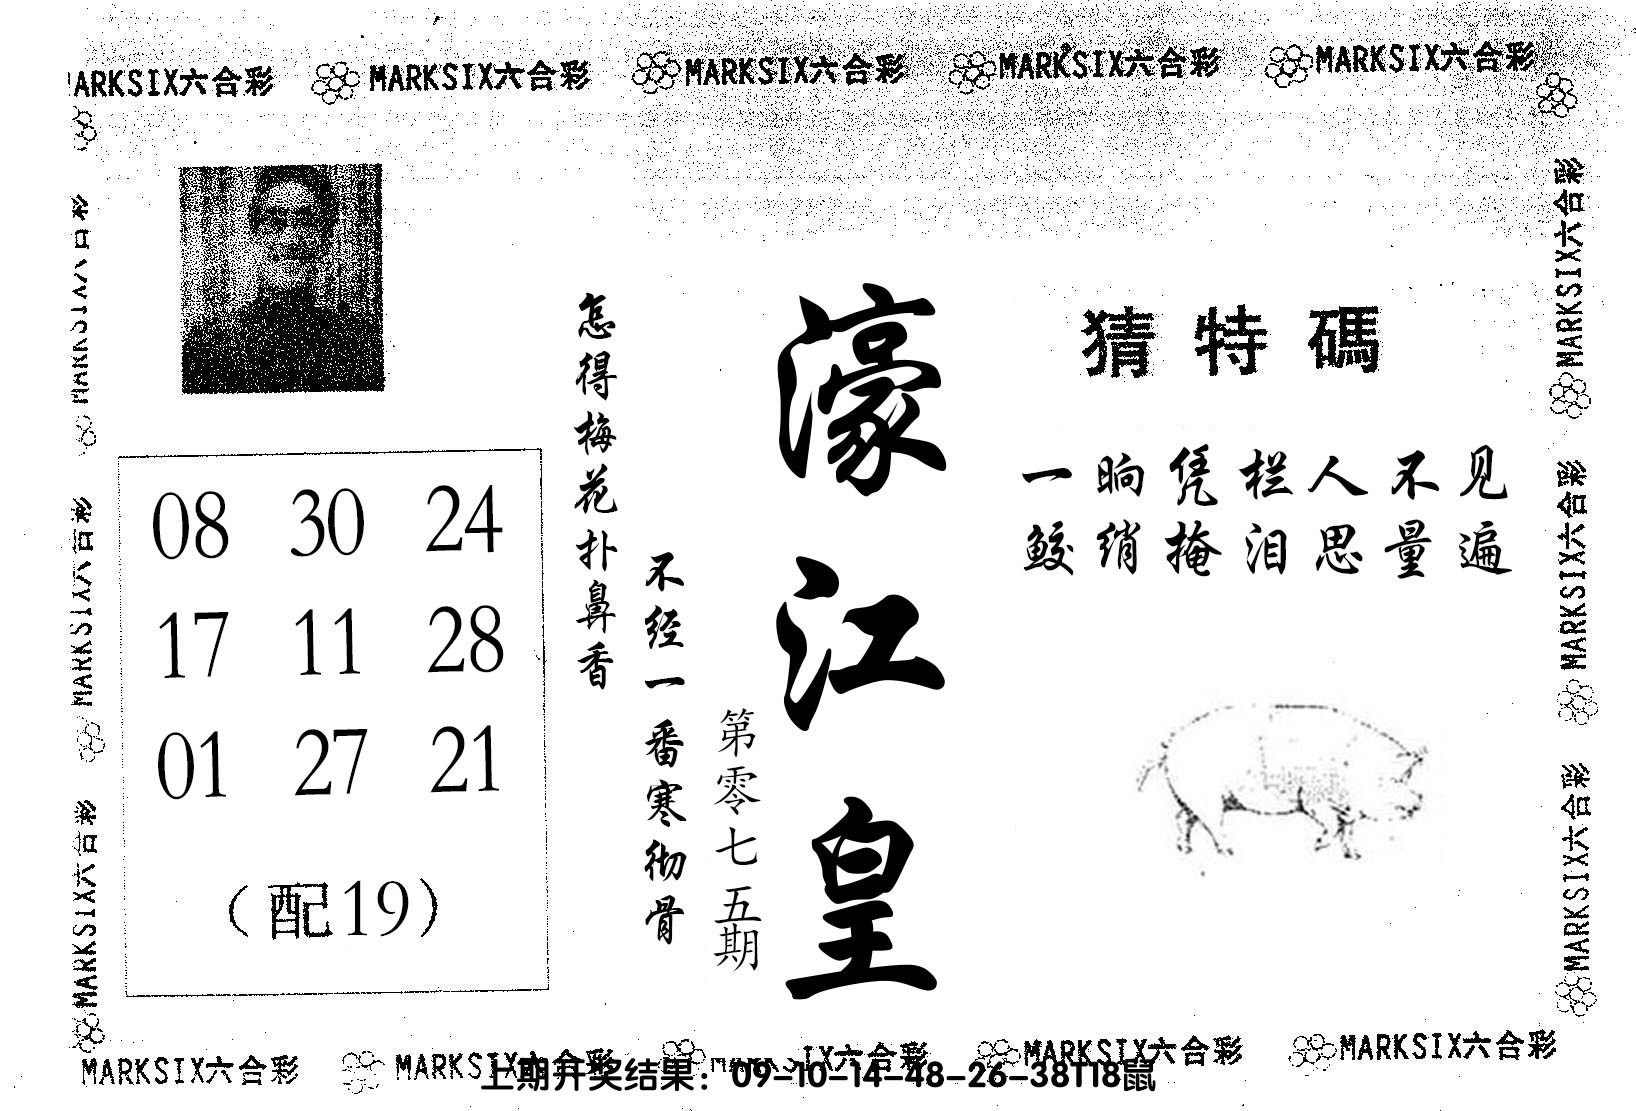 MARKSIX六合彩 MARKSIX六合彩 MARKSIX六合彩 MARKSIX六合彩
MARKSIX六合彩
MARKSIX六合彩
MARKSIX六合彩
MARKSIX六合彩
MARKSIX六合彩
MARKSIX六合彩
猜特碼
一晌凭栏人不见
鲛绡掩泪思量遍
濠江皇
第零七五期
不经一番寒彻骨
怎得梅花扑鼻香
08 30 24
17 11 28
01 27 21
（配19）
MARKSIX六合彩 MARKSIX六合彩 MARKSIX六合彩 MARKSIX六合彩
上期开奖结果：09-10-14-48-26-38T18鼠